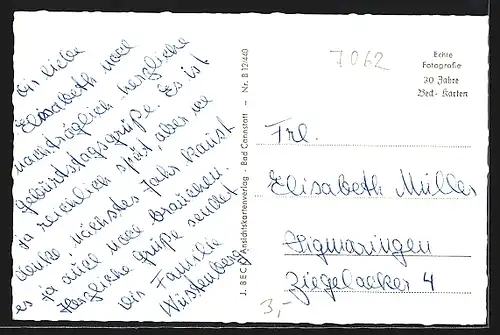 Dir liebe
Elisabeth noch
nachträglich herzliche
Geburtstagsgrüße. Es ist
ja reichlich spät, aber ich
denke nächstes Jahr kannst
es ja auch noch brauchen.
Herzliche Grüße sendet
Dir Familie
Wüstenberg
J. BECK Ansichtskartenverlag - Bad Cannstatt - Nr. B 12/440
7062
Echte
Fotografie
30 Jahre
Beck-Karten
Frl.
Elisabeth Müller
Sigmaringen
Ziegelacker 4
3,-